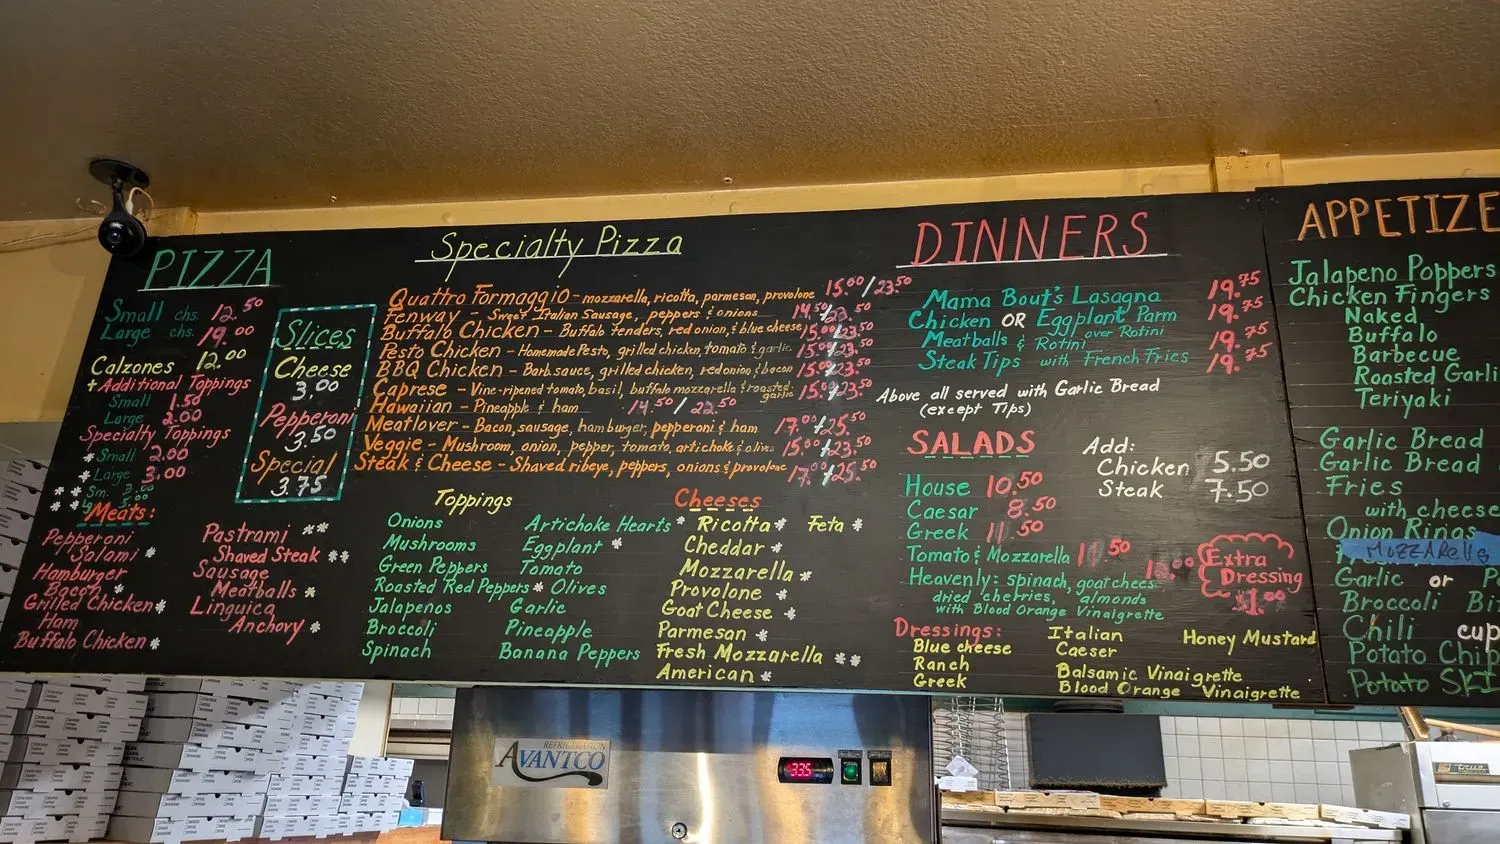 PIZZA
Small chs. 12.50
Large chs. 19.00
Calzones 12.00
+Additional Toppings
Small 1.50
Large 2.00
Specialty Toppings
* Small 2.00
* Large 3.00
** Sm.
** Lg. 5.00
Slices
Cheese
3.00
Pepperoni
3.50
Special
3.75
Meats:
Pepperoni
Salami *
Hamburger
Bacon *
Grilled Chicken *
Ham
Buffalo Chicken *
Pastrami **
Shaved Steak **
Sausage
Meatballs *
Linguica
Anchovy *
Specialty Pizza
Quattro Formaggio - mozzarella, ricotta, parmesan, provolone 15.00/23.50
Fenway - Sweet Italian Sausage, peppers & onions 14.50/22.50
Buffalo Chicken - Buffalo tenders, red onion, & blue cheese 15.00/23.50
Pesto Chicken - Homemade Pesto, grilled chicken, tomato & garlic 15.00/23.50
BBQ Chicken - Barb sauce, grilled chicken, red onion & bacon 15.00/23.50
Caprese - Vine-ripened tomato, basil, buffalo mozzarella & roasted garlic 15.00/23.50
Hawaiian - Pineapple & ham 14.50/22.50
Meatlover - Bacon, sausage, hamburger, pepperoni & ham 17.00/25.50
Veggie - Mushroom, onion, pepper, tomato, artichoke & olives 15.00/23.50
Steak & Cheese - Shaved ribeye, peppers, onions & provolone 17.00/25.50
Toppings
Onions
Mushrooms
Green Peppers
Roasted Red Peppers *
Jalapenos
Broccoli
Spinach
Artichoke Hearts *
Eggplant *
Tomato
Olives
Garlic
Pineapple
Banana Peppers
Cheeses
Ricotta * Feta *
Cheddar *
Mozzarella *
Provolone *
Goat Cheese *
Parmesan *
Fresh Mozzarella **
American *
DINNERS
Mama Bout's Lasagna 19.75
Chicken OR Eggplant Parm over Rotini 19.75
Meatballs & Rotini 19.75
Steak Tips with French Fries 19.75
Above all served with Garlic Bread
(except Tips)
SALADS
House 10.50
Caesar 8.50
Greek 11.50
Tomato & Mozzarella 11.50
Heavenly: spinach, goat chees
dried cherries, almonds
with Blood Orange Vinaigrette
Add:
Chicken 5.50
Steak 7.50
Extra
Dressing
$1.00
Dressings:
Blue cheese
Ranch
Greek
Italian
Caeser
Balsamic Vinaigrette
Blood Orange Vinaigrette
Honey Mustard
APPETIZE
Jalapeno Poppers
Chicken Fingers
Naked
Buffalo
Barbecue
Roasted Garli
Teriyaki
Garlic Bread
Garlic Bread
Fries
with cheese
Onion Rings
MOZZARella
Garlic or P
Broccoli Bi
Chili cup
Potato Chip
Potato Ski
REFRIGERATION
AVANTCO
33.5
true